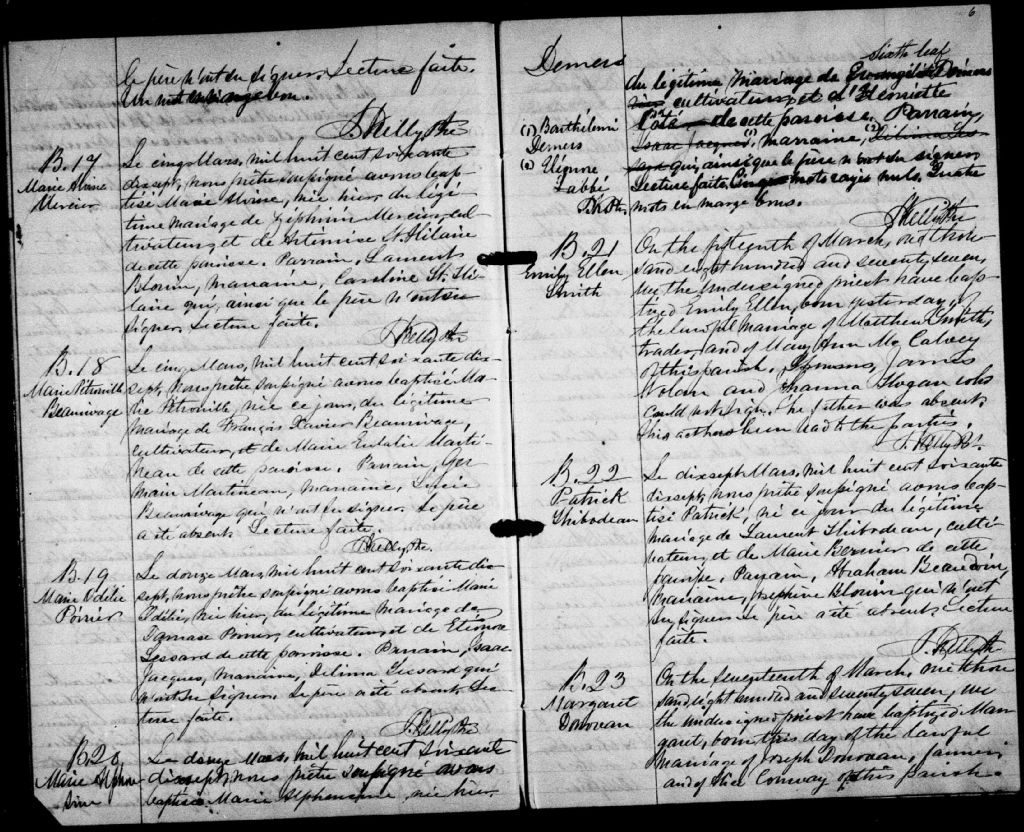 le père n'ont su signer. Lecture faite.
Un mot en marge bon.
J. Kelly Ptre
B. 17
Marie Alvine
Mercier
Le cinq Mars, mil huit cent soixante
dixsept, nous prêtre soussigné avons bap-
tisé Marie Alvine, née hier, du légi-
time mariage de Zéphirin Mercier, cul-
tivateur, et de Artémise St. Hilaire
de cette paroisse. Parrain, Laurent
Blouin, marraine, Caroline St. Hi-
laire qui, ainsi que le père n'ont su
signer. Lecture faite.
J. Kelly Ptre
B. 18
Marie Pétronille
Beaurivage
Le cinq Mars, mil huit cent soixante dix-
sept, nous prêtre soussigné avons baptisé Ma-
rie Pétronille, née ce jour, du légitime
mariage de François Xavier Beaurivage,
cultivateur, et de Marie Eulalie Marti-
neau de cette paroisse. Parrain, Ger-
main Martineau, marraine, Lucie
Beaurivage qui n'ont su signer. Le père
a été absent. Lecture faite.
J. Kelly Ptre.
B. 19
Marie Odélie
Poirier
Le douze Mars, mil huit cent soixante dix-
sept, nous prêtre soussigné avons baptisé Marie
Odélie, née hier, du légitime mariage de
Damase Poirier, cultivateur, et de Eléonore
Lessard de cette paroisse. Parrain, Isaac
Jacques, Marraine, Délima Lessard qui
n'ont su signer. Le père a été absent. Lec-
ture faite.
J. Kelly Ptre
B. 20
Marie Alphon-
sine
Le douze Mars, mil huit cent soixante
dixsept, nous prêtre soussigné avons
baptisé Marie Alphonsine, née hier,
6
Sixth leaf
Demers
du légitime mariage de Evangéliste Demers
cultivateur, et d'Henriette
Côté de cette paroisse. Parrain,
Isaac Jacques, (1) marraine, (2) Délima Les-
sard qui, ainsi que le père n'ont su signer.
Lecture faite. Cinq mots rayés nuls. Quatre
mots en marge bons.
(1) Barthélemi
Demers
(2) Eléonore
Labbé
J. K. Ptr.
J. Kelly Ptre
B. 21
Emily Ellen
Smith
On the fifteenth of March, one thou-
sand eight hundred and seventy seven,
we the undersigned priest have bap-
tized Emily Ellen, born yesterday of
the lawful marriage of Matthew Smith,
trader, and of Mary Ann McCalvey
of this parish. Sponsors, James
Nolan and Hanna Hogan who
could not sign. The father was absent.
This act has been read to the parties.
J. Kelly Pt.
B. 22
Patrick
Thibodeau
Le dixsept Mars, mil huit cent soixante
dixsept, nous prêtre soussigné avons bap-
tisé Patrick, né ce jour du légitime
mariage de Laurent Thibodeau, culti-
vateur, et de Marie Bernier de cette
paroisse. Parrain, Abraham Beaudoin,
Marraine, Joséphine Blouin qui n'ont
su signer. Le père a été absent. Lecture
faite.
J. Kelly Ptre
B. 23
Margaret
Donovan
On the seventeenth of March, one thou-
sand eight hundred and seventy seven, we
the undersigned priest have baptized Mar-
garet, born this day of the lawful
marriage of Joseph Donovan, farmer,
and of Alice Conway of this parish.